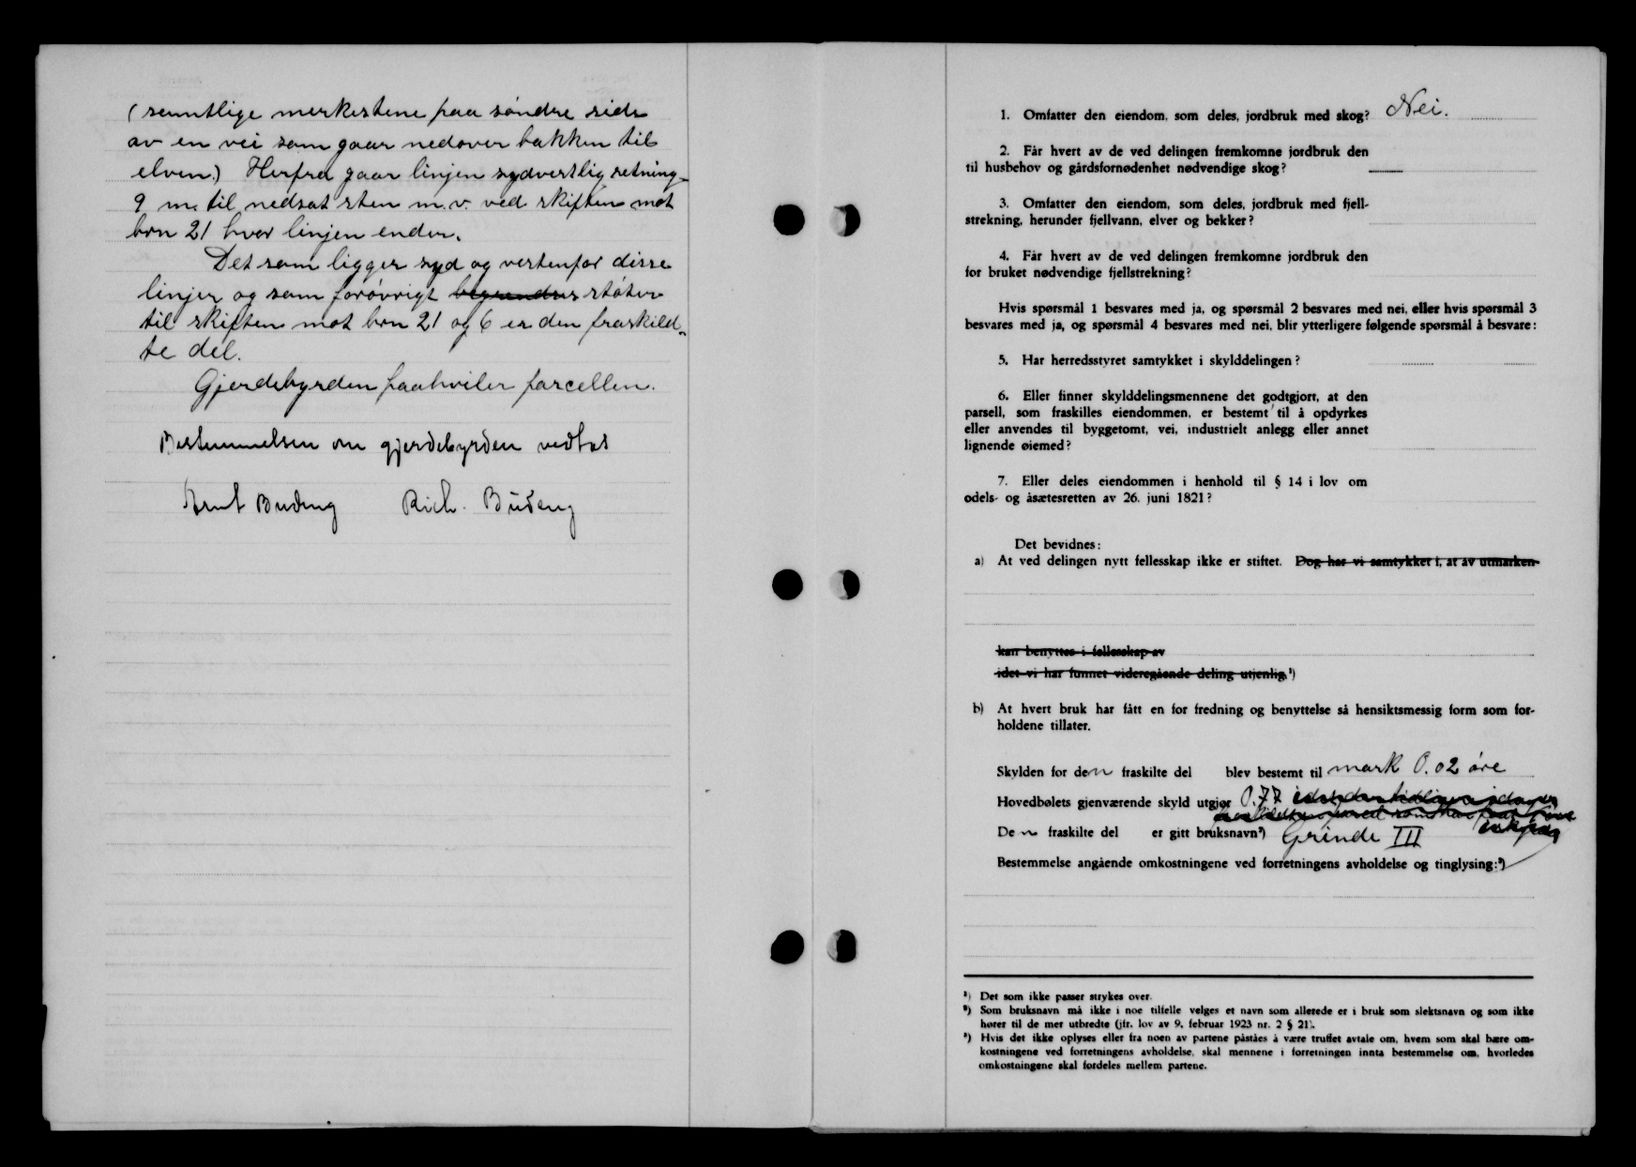 (samtlige merkestene paa söndre side
av en vei som gaar nedover bakken til
elven.) Herfra gaar linjen sydvestlig retning
9 m. til nedsat sten m.v. ved skiften mot
brn 21 hvor linjen ender.
Det som ligger syd og vestenfor disse
linjer og som forövrigt begrendses støter
til skiften mot brn 21 og 6 er den fraskild-
te del.
Gjerdebyrden paahviler parcellen.
Bestemmelsen om gjerdebyrden vedtas
Arnt Budeng Rich. Budeng
1. Omfatter den eiendom, som deles, jordbruk med skog? Nei.
2. Får hvert av de ved delingen fremkomne jordbruk den
til husbehov og gårdsfornødenhet nødvendige skog?
3. Omfatter den eiendom, som deles, jordbruk med fjell-
strekning, herunder fjellvann, elver og bekker?
4. Får hvert av de ved delingen fremkomne jordbruk den
for bruket nødvendige fjellstrekning?
Hvis spørsmål 1 besvares med ja, og spørsmål 2 besvares med nei, eller hvis spørsmål 3
besvares med ja, og spørsmål 4 besvares med nei, blir ytterligere følgende spørsmål å besvare:
5. Har herredsstyret samtykket i skylddelingen?
6. Eller finner skylddelingsmennene det godtgjort, at den
parsell, som fraskilles eiendommen, er bestemt til å opdyrkes
eller anvendes til byggetomt, vei, industrielt anlegg eller annet
lignende øiemed?
7. Eller deles eiendommen i henhold til § 14 i lov om
odels- og åsætesretten av 26. juni 1821?
Det bevidnes:
a) At ved delingen nytt fellesskap ikke er stiftet. Dog har vi samtykket i, at av utmarken
kan benyttes i fellesskap av
idet vi har funnet videregående deling utjenlig.¹)
b) At hvert bruk har fått en for fredning og benyttelse så hensiktsmessig form som for-
holdene tillater.
Skylden for den fraskilte del blev bestemt til mark 0.02 öre
Hovedbølets gjenværende skyld utgjør 0.77
Den fraskilte del er gitt bruksnavn²) Grinde III
Bestemmelse angående omkostningene ved forretningens avholdelse og tinglysing:³)
¹) Det som ikke passer strykes over.
²) Som bruksnavn må ikke i noe tilfelle velges et navn som allerede er i bruk som slektsnavn og som ikke
hører til de mer utbredte (jfr. lov av 9. februar 1923 nr. 2 § 21).
³) Hvis det ikke oplyses eller fra noen av partene påståes å være truffet avtale om, hvem som skal bære om-
kostningene ved forretningens avholdelse, skal mennene i forretningen innta bestemmelse om, hvorledes
omkostningene skal fordeles mellem partene.